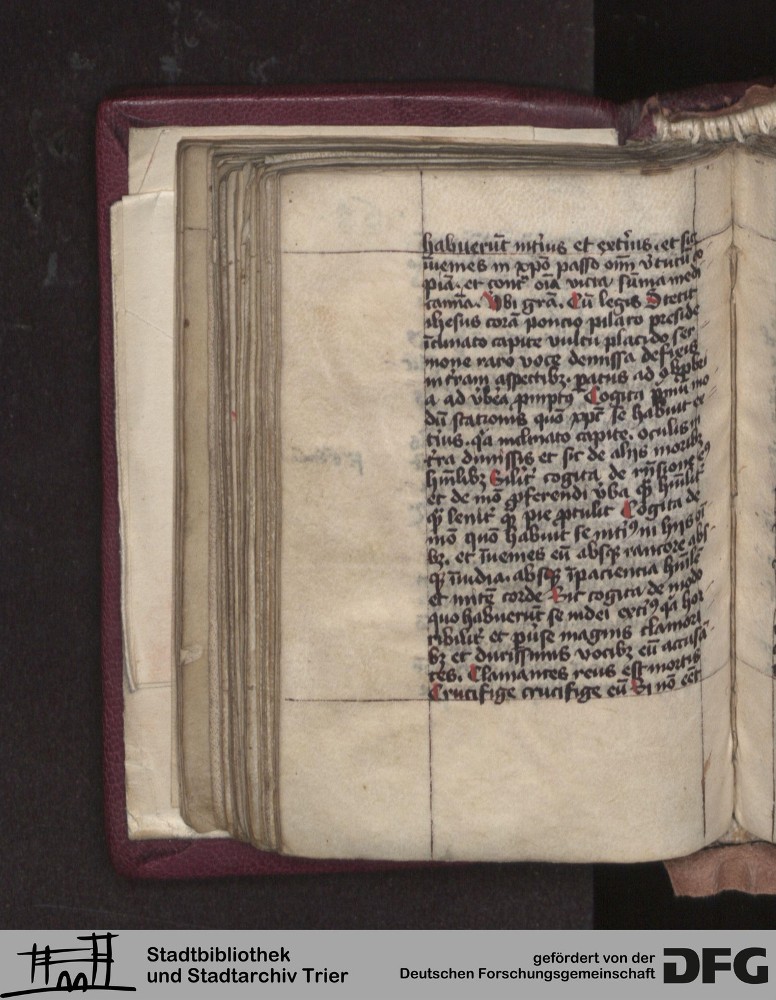 habuerūt int̄ius etext̄ius. et sic
īuenies in xp̄o passo om̄ v̄tutū
piā. et cont̄ oīa vicia sūma medi
camīa. Vbi grā. Cū legis Stetit
ihesus corā poncio pilato preside
īclinato capite vultu placido ser
mone raro voce demissa defixis
in t̄ram aspectibꝫ. paratus ad
a ad v̄bera prompt⁹ Cogita mo
dū stationis quō xp̄c se habuit ex
t̄ius. qa inclinato capite. oculis in
t̄ra dimissis et sic de alijs moribꝫ
hūilibꝫ Silit̄ cogita de rn̄sione ei⁹
et de mō ꝓferendi v̄ba qꝫ hūilit̄
qꝫ lenit̄ qꝫ pie ꝓtulit Cogita de
mō quō habuit se int̄i⁹ in hijs oī
bꝫ. et īuenies eū absqꝫ rancore abs
qꝫ īuidia. absqꝫ īpaciencia hūile
et mite corde Sic cogita de modo
quo habuerūt se iudei ext̄i⁹ qa hor
ribilit̄ et magnis clamori
bꝫ et durissimis vocibꝫ eū accusā
tes. Clamantes reus est mortis
Crucifige crucifige eū Si nō eēt
Stadtbibliothek
und Stadtarchiv Trier
gefördert von der
Deutschen Forschungsgemeinschaft
DFG